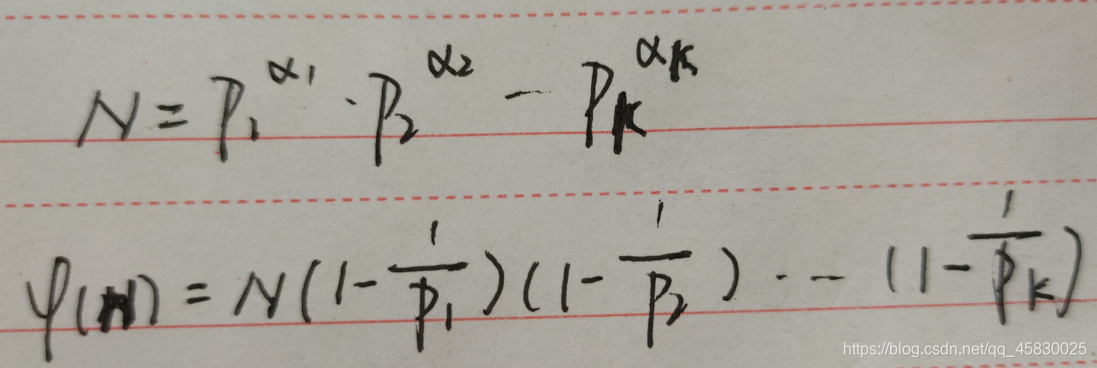 N = P₁^α₁ · P₂^α₂ -- P_K^α_K
φ(N) = N(1 - 1/P₁)(1 - 1/P₂) · -- (1 - 1/P_K)
https://blog.csdn.net/qq_45830025